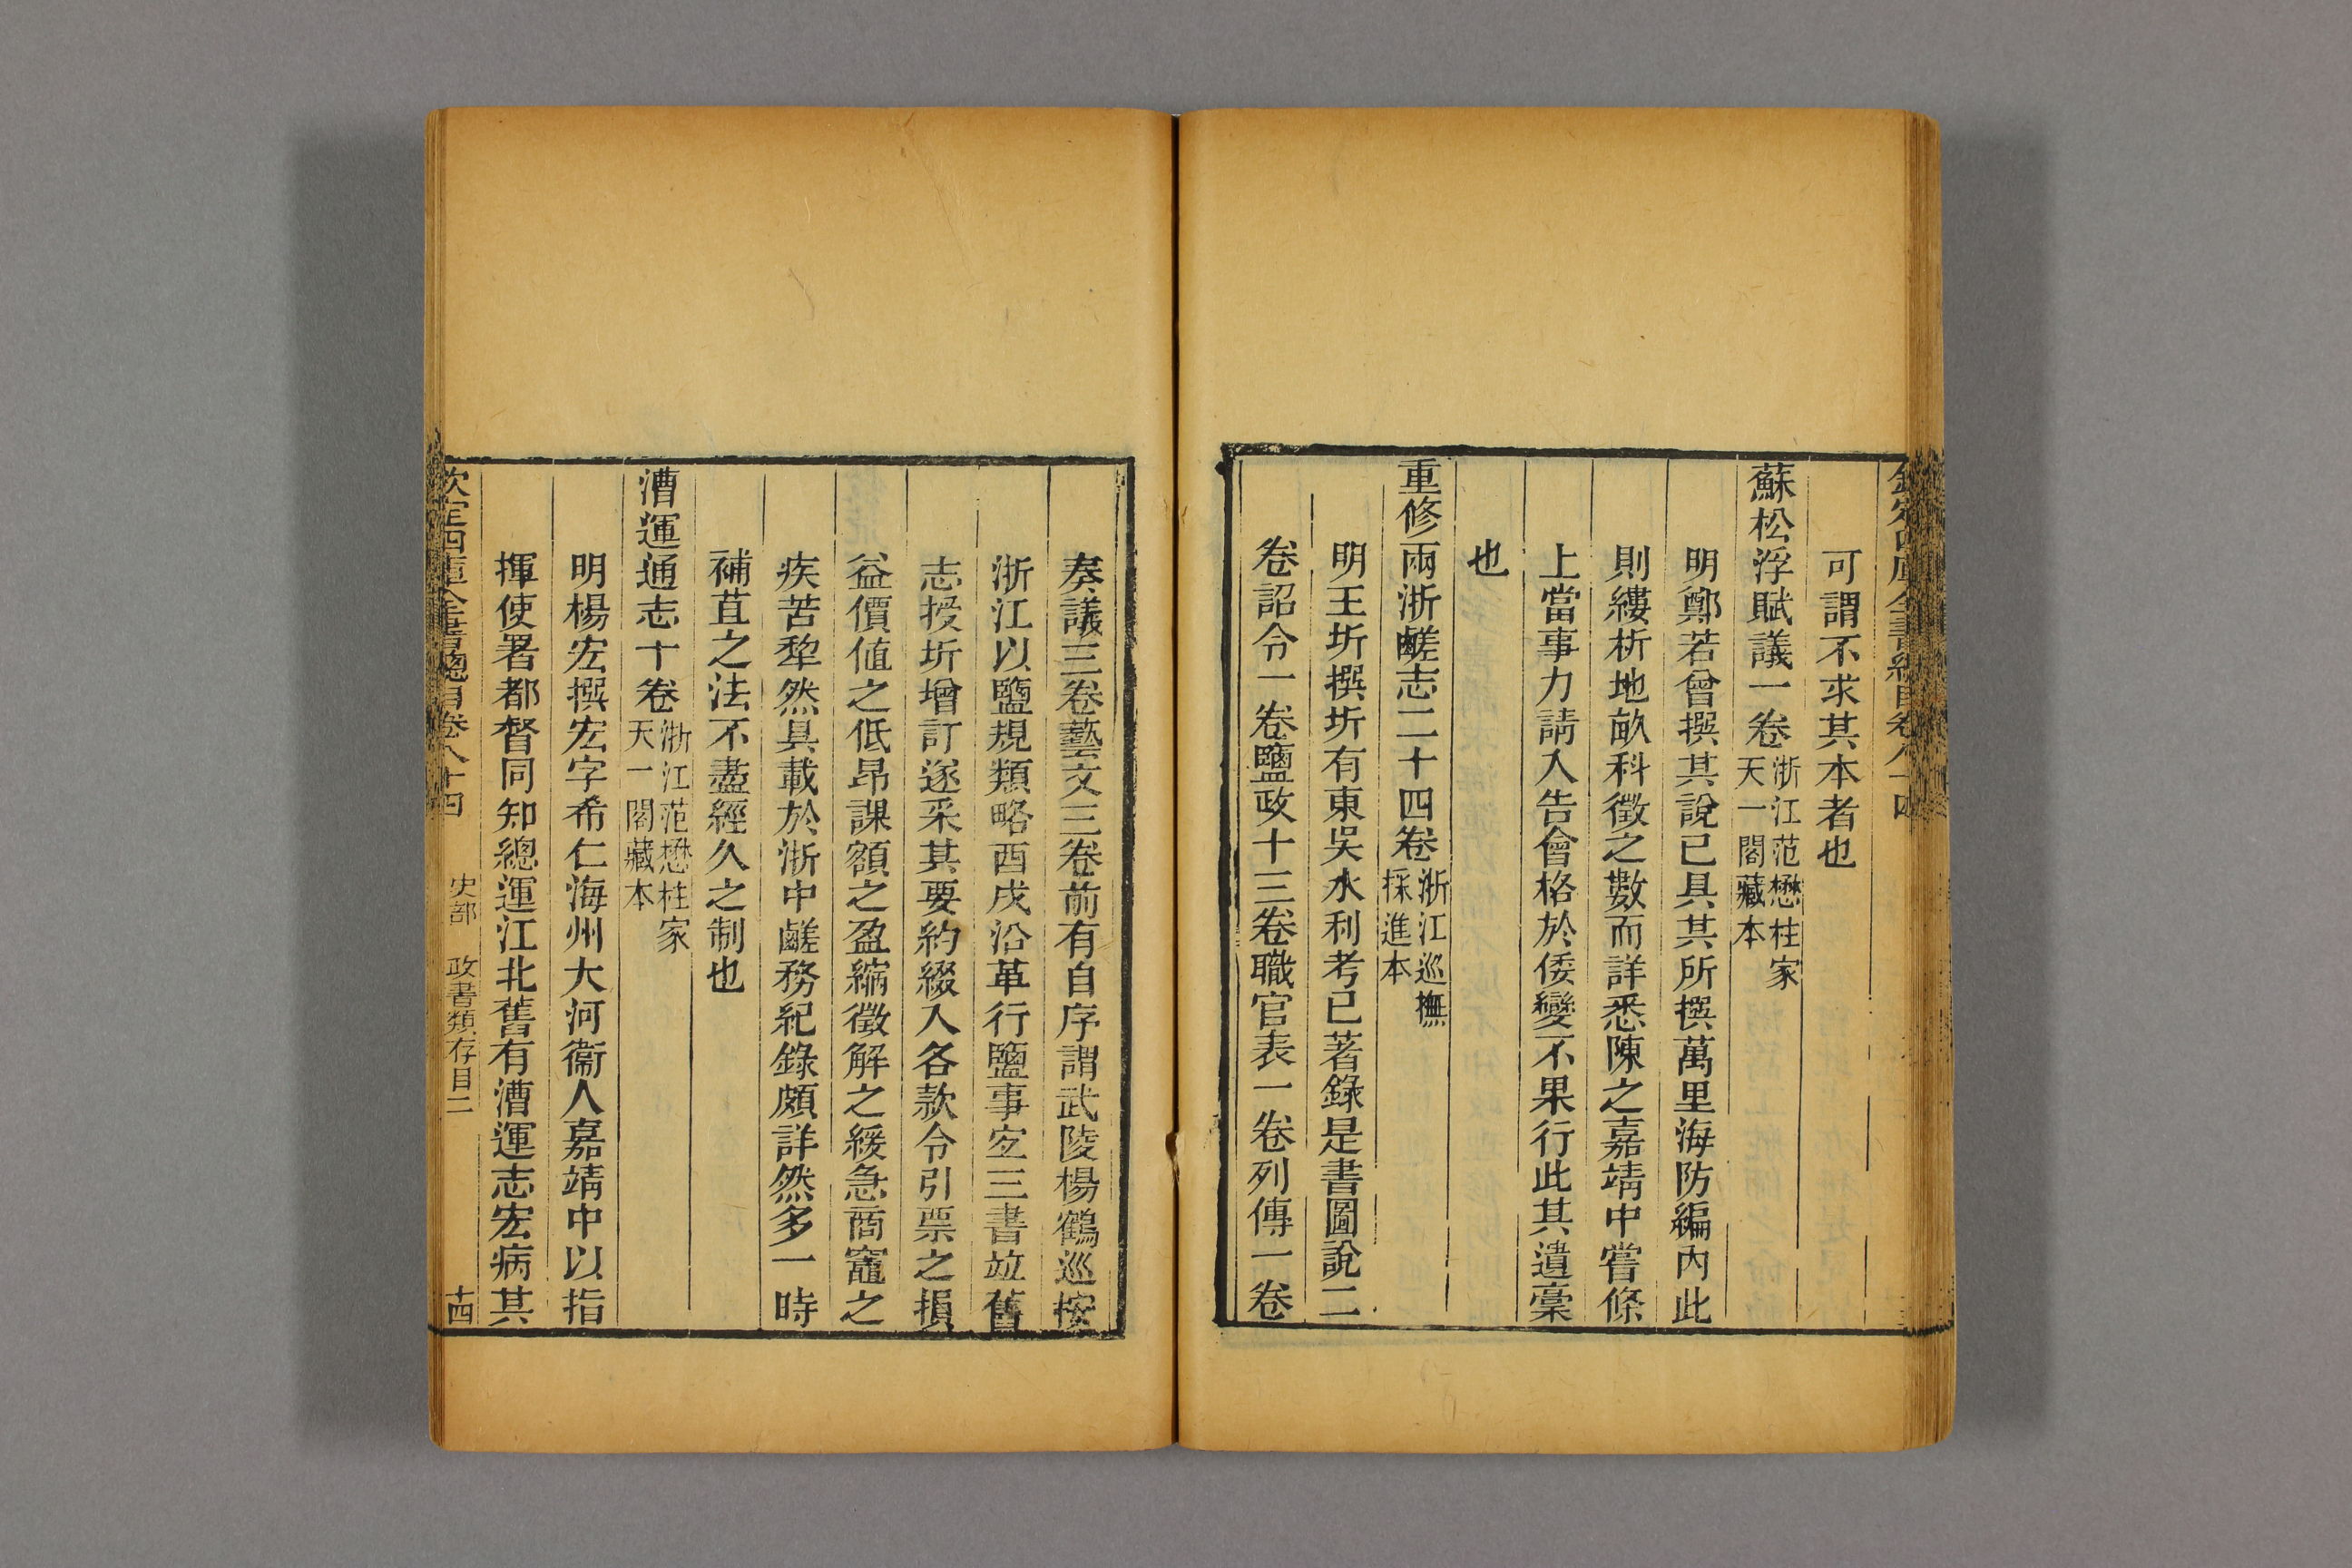 欽定四庫全書總目卷八十四
可謂不求其本者也
蘇松浮賦議一卷浙江范懋柱家天一閣藏本
明鄭若曾撰其說已具其所撰萬里海防編內此
則縷析地畝科徵之數而詳悉陳之嘉靖中嘗條
上當事力請入告會格於倭變不果行此其遺稾
也
重修兩浙鹺志二十四卷浙江巡撫採進本
明王圻撰圻有東吳水利考已著錄是書圖說二
卷詔令一卷鹽政十三卷職官表一卷列傳一卷
奏議三卷藝文三卷前有自序謂武陵楊鶴巡按
浙江以鹽規類略酉戌沿革行鹽事宐三書竝舊
志授圻增訂遂采其要約綴入各款令引票之損
益價值之低昂課額之盈縮徵解之緩急商竈之
疾苦犂然具載於浙中鹺務紀錄頗詳然多一時
補苴之法不盡經久之制也
漕運通志十卷浙江范懋柱家天一閣藏本
明楊宏撰宏字希仁海州大河衞人嘉靖中以指
揮使署都督同知總運江北舊有漕運志宏病其
欽定四庫全書總目卷八十四　史部　政書類存目二　十四